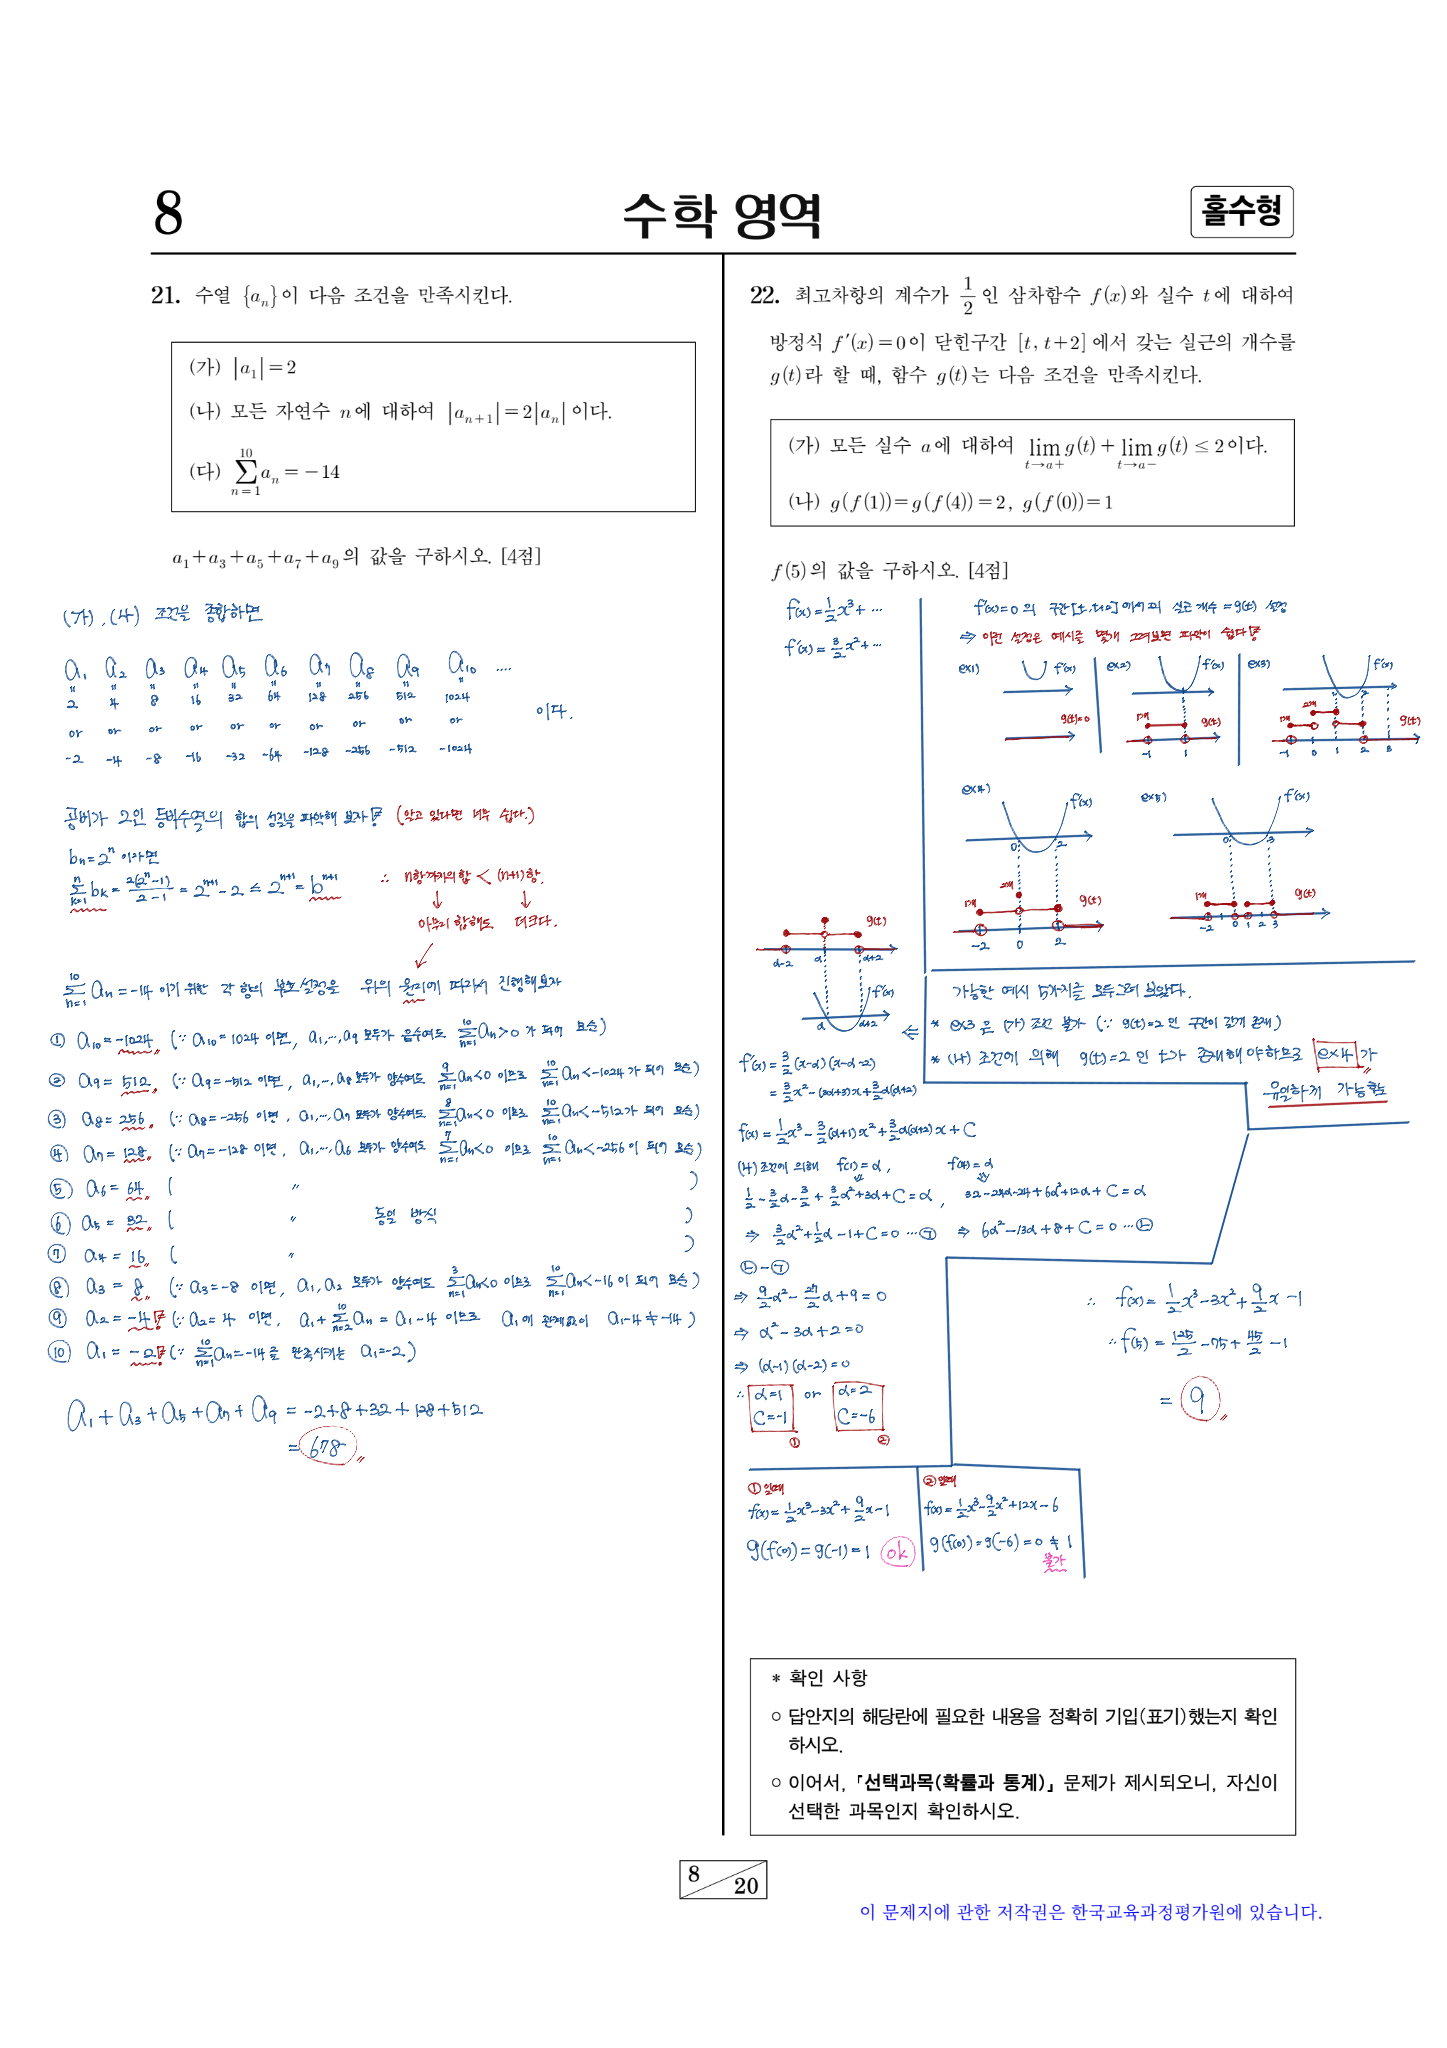 8
수학 영역
홀수형
21. 수열 {aₙ}이 다음 조건을 만족시킨다.
(가) |a₁| = 2
(나) 모든 자연수 n에 대하여 |aₙ₊₁| = 2|aₙ| 이다.
(다) ∑ₙ₌₁¹⁰ aₙ = −14
a₁+a₃+a₅+a₇+a₉의 값을 구하시오. [4점]
(가), (나) 조건을 종합하면
a₁ a₂ a₃ a₄ a₅ a₆ a₇ a₈ a₉ a₁₀ ....
" " " " " " " " " "
2 4 8 16 32 64 128 256 512 1024
or or or or or or or or or or 이다.
-2 -4 -8 -16 -32 -64 -128 -256 -512 -1024
공비가 2인 등비수열의 합의 성질을 파악해 보자! (알고 있다면 너무 쉽다.)
bₙ = 2ⁿ 이라면
∑ₖ₌₁ⁿ bₖ = 2(2ⁿ-1)/(2-1) = 2ⁿ⁺¹-2 ≤ 2ⁿ⁺¹ = bⁿ⁺¹ ∴ n항까지의 합 < (n+1)항.
아무리 합해도 더 크다.
∑ₙ₌₁¹⁰ aₙ = -14 이기 위한 각 항의 부호설정을 위의 원리에 따라서 진행해보자
① a₁₀ = -1024 (∵ a₁₀ = 1024 이면, a₁,…,a₉ 모두가 음수여도 ∑ₙ₌₁¹⁰ aₙ > 0 가 되어 모순)
② a₉ = 512 (∵ a₉ = -512 이면, a₁,…,a₈ 모두가 양수여도 ∑ₙ₌₁⁹ aₙ < 0 이므로 ∑ₙ₌₁¹⁰ aₙ < -1024 가 되어 모순)
③ a₈ = 256 (∵ a₈ = -256 이면, a₁,…,a₇ 모두가 양수여도 ∑ₙ₌₁⁸ aₙ < 0 이므로 ∑ₙ₌₁¹⁰ aₙ < -512 가 되어 모순)
④ a₇ = 128 (∵ a₇ = -128 이면, a₁,…,a₆ 모두가 양수여도 ∑ₙ₌₁⁷ aₙ < 0 이므로 ∑ₙ₌₁¹⁰ aₙ < -256 이 되어 모순)
⑤ a₆ = 64 ( " )
⑥ a₅ = 32 ( " 동일 방식 )
⑦ a₄ = 16 ( " )
⑧ a₃ = 8 (∵ a₃ = -8 이면, a₁, a₂ 모두가 양수여도 ∑ₙ₌₁³ aₙ < 0 이므로 ∑ₙ₌₁¹⁰ aₙ < -16 이 되어 모순)
⑨ a₂ = -4! (∵ a₂ = 4 이면, a₁ + ∑ₙ₌₂¹⁰ aₙ = a₁ - 4 이므로 a₁에 관계없이 a₁-4 ≠ -14)
⑩ a₁ = -2! (∵ ∑ₙ₌₁¹⁰ aₙ = -14를 만족시키는 a₁ = -2)
a₁ + a₃ + a₅ + a₇ + a₉ = -2+8+32+128+512
= 678
22. 최고차항의 계수가 1/2인 삼차함수 f(x)와 실수 t에 대하여
방정식 f′(x) = 0이 닫힌구간 [t, t+2]에서 갖는 실근의 개수를
g(t)라 할 때, 함수 g(t)는 다음 조건을 만족시킨다.
(가) 모든 실수 a에 대하여 lim t→a+ g(t) + lim t→a− g(t) ≤ 2이다.
(나) g(f(1)) = g(f(4)) = 2, g(f(0)) = 1
f(5)의 값을 구하시오. [4점]
f(x) = 1/2x³ + …
f′(x) = 3/2x² + …
f′(x)=0 의 구간 [t, t+2] 에서의 실근 개수 = g(t) 설정
⇒ 이런 설정은 예시를 몇개 그려보면 파악이 쉽다!
ex1) f′(x) g(t)=0
ex2) f′(x) 1개 g(t) -1 1
ex3) f′(x) 1 2 1개 2개 g(t) -1 0 1 2 3
ex4) f′(x) 0 2 1개 2개 g(t) -2 0 2
ex5) f′(x) 0 3 1개 g(t) -2 0 1 2 3
가능한 예시 5가지를 모두 그려 보았다.
* ex3 은 (가) 조건 불가 (∵ g(t)=2 인 구간이 길게 존재)
* (나) 조건에 의해 g(t)=2 인 t가 존재해야 하므로 ex4 가
유일하게 가능함
g(t) α-2 α α+2
f′(x) α α+2
⇐
f′(x) = 3/2(x-α)(x-α-2)
= 3/2x² - (3α+3)x + 3/2α(α+2)
f(x) = 1/2x³ - 3/2(α+1)x² + 3/2α(α+2)x + C
(나)조건에 의해 f(1) = α, f(4) = α
1/2 - 3/2α - 3/2 + 3/2α² + 3α + C = α, 32-24α-24+6α²+12α+C = α
⇒ 3/2α² + 1/2α - 1 + C = 0 … ㉠ ⇒ 6α² - 13α + 8 + C = 0 … ㉡
㉡ - ㉠
⇒ 9/2α² - 27/2α + 9 = 0
⇒ α² - 3α + 2 = 0
⇒ (α-1)(α-2) = 0
∴ α=1 or α=2
C=-1 C=-6
① ②
① 일때
f(x) = 1/2x³ - 3x² + 9/2x - 1
g(f(0)) = g(-1) = 1 ok
② 일때
f(x) = 1/2x³ - 9/2x² + 12x - 6
g(f(0)) = g(-6) = 0 ≠ 1
불가
∴ f(x) = 1/2x³ - 3x² + 9/2x - 1
∴ f(5) = 125/2 - 75 + 45/2 - 1
= 9
* 확인 사항
○ 답안지의 해당란에 필요한 내용을 정확히 기입(표기)했는지 확인
하시오.
○ 이어서, 「선택과목(확률과 통계)」 문제가 제시되오니, 자신이
선택한 과목인지 확인하시오.
8 / 20
이 문제지에 관한 저작권은 한국교육과정평가원에 있습니다.